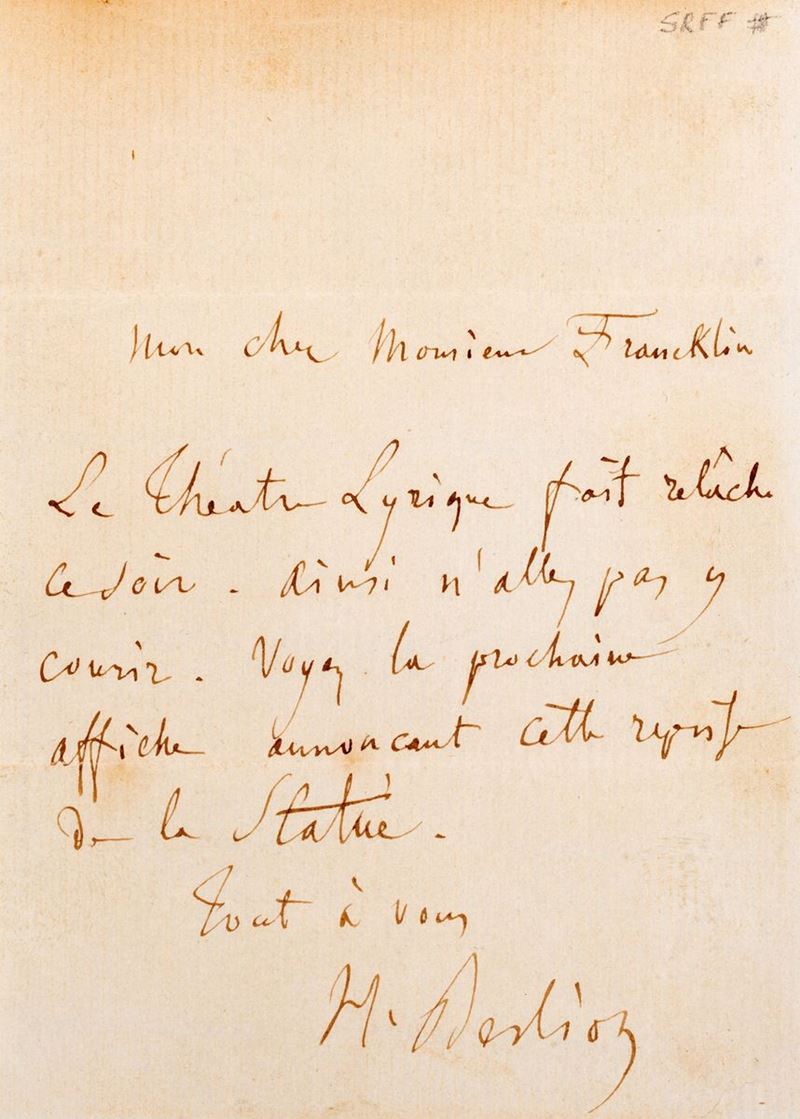 SRFF #
Mon cher Monsieur Francklin
Le Théatre Lyrique fait relâche
ce soir. Ainsi n'allez pas y
courir. Voyez la prochaine
affiche annoncant cette reprise
de la Statue.
Tout à vous
H. Berlioz